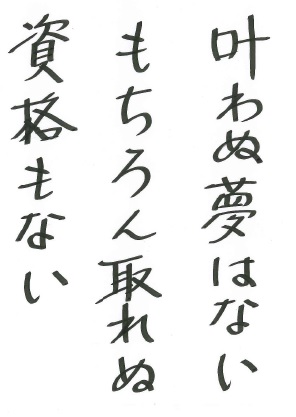 叶わぬ夢はない
もちろん取れぬ
資格もない